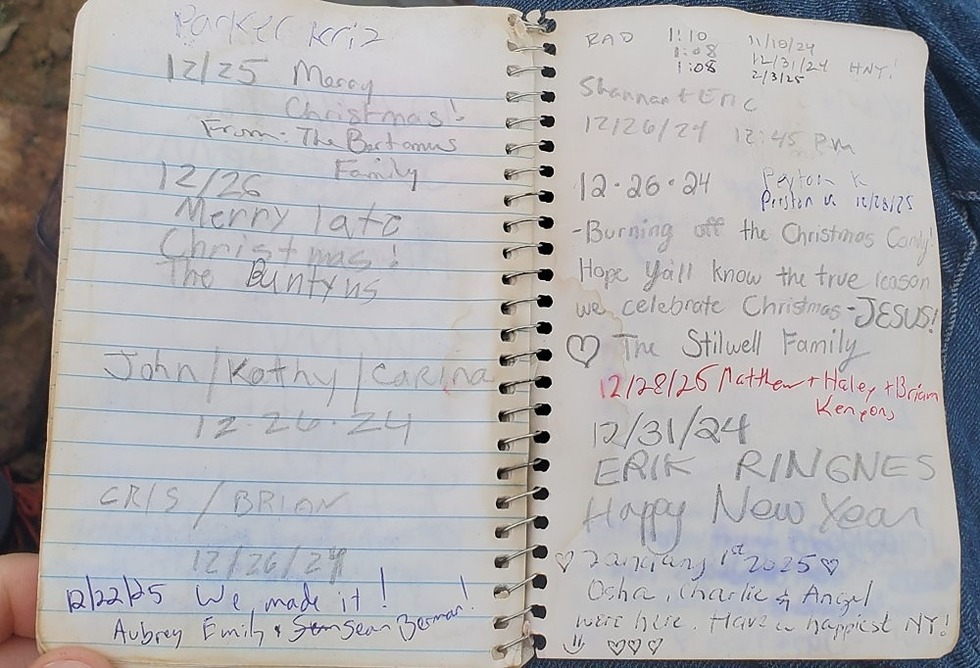 Parker Kriz
12/25 Merry
Christmas!
From: The Bartanus
Family
12/26
Merry late
Christmas!
The Buntyns
John/Kathy/Carina
12-26-24
CRIS / BRIAN
12/26/24
12/22/25 We made it!
Aubrey Emily & Sean Berman!
RAD 1:10 11/10/24
1:08 12/31/24 HNY!
1:08 2/3/25
Shannan + Eric
12/26/24 12:45 Pm
12·26·24 Peyton K
Preston K 12/28/25
-Burning off the Christmas Candy!
Hope Ya'll know the true reason
we celebrate Christmas-JESUS!
♡ The Stilwell Family
12/28/25 Matthew + Haley + Brian
Kenyons
12/31/24
ERIK RINGNES
Happy New Year
♡ January 1st 2025 ♡
Osha, Charlie & Angel
were here. Have a happiest NY!
♡♡♡